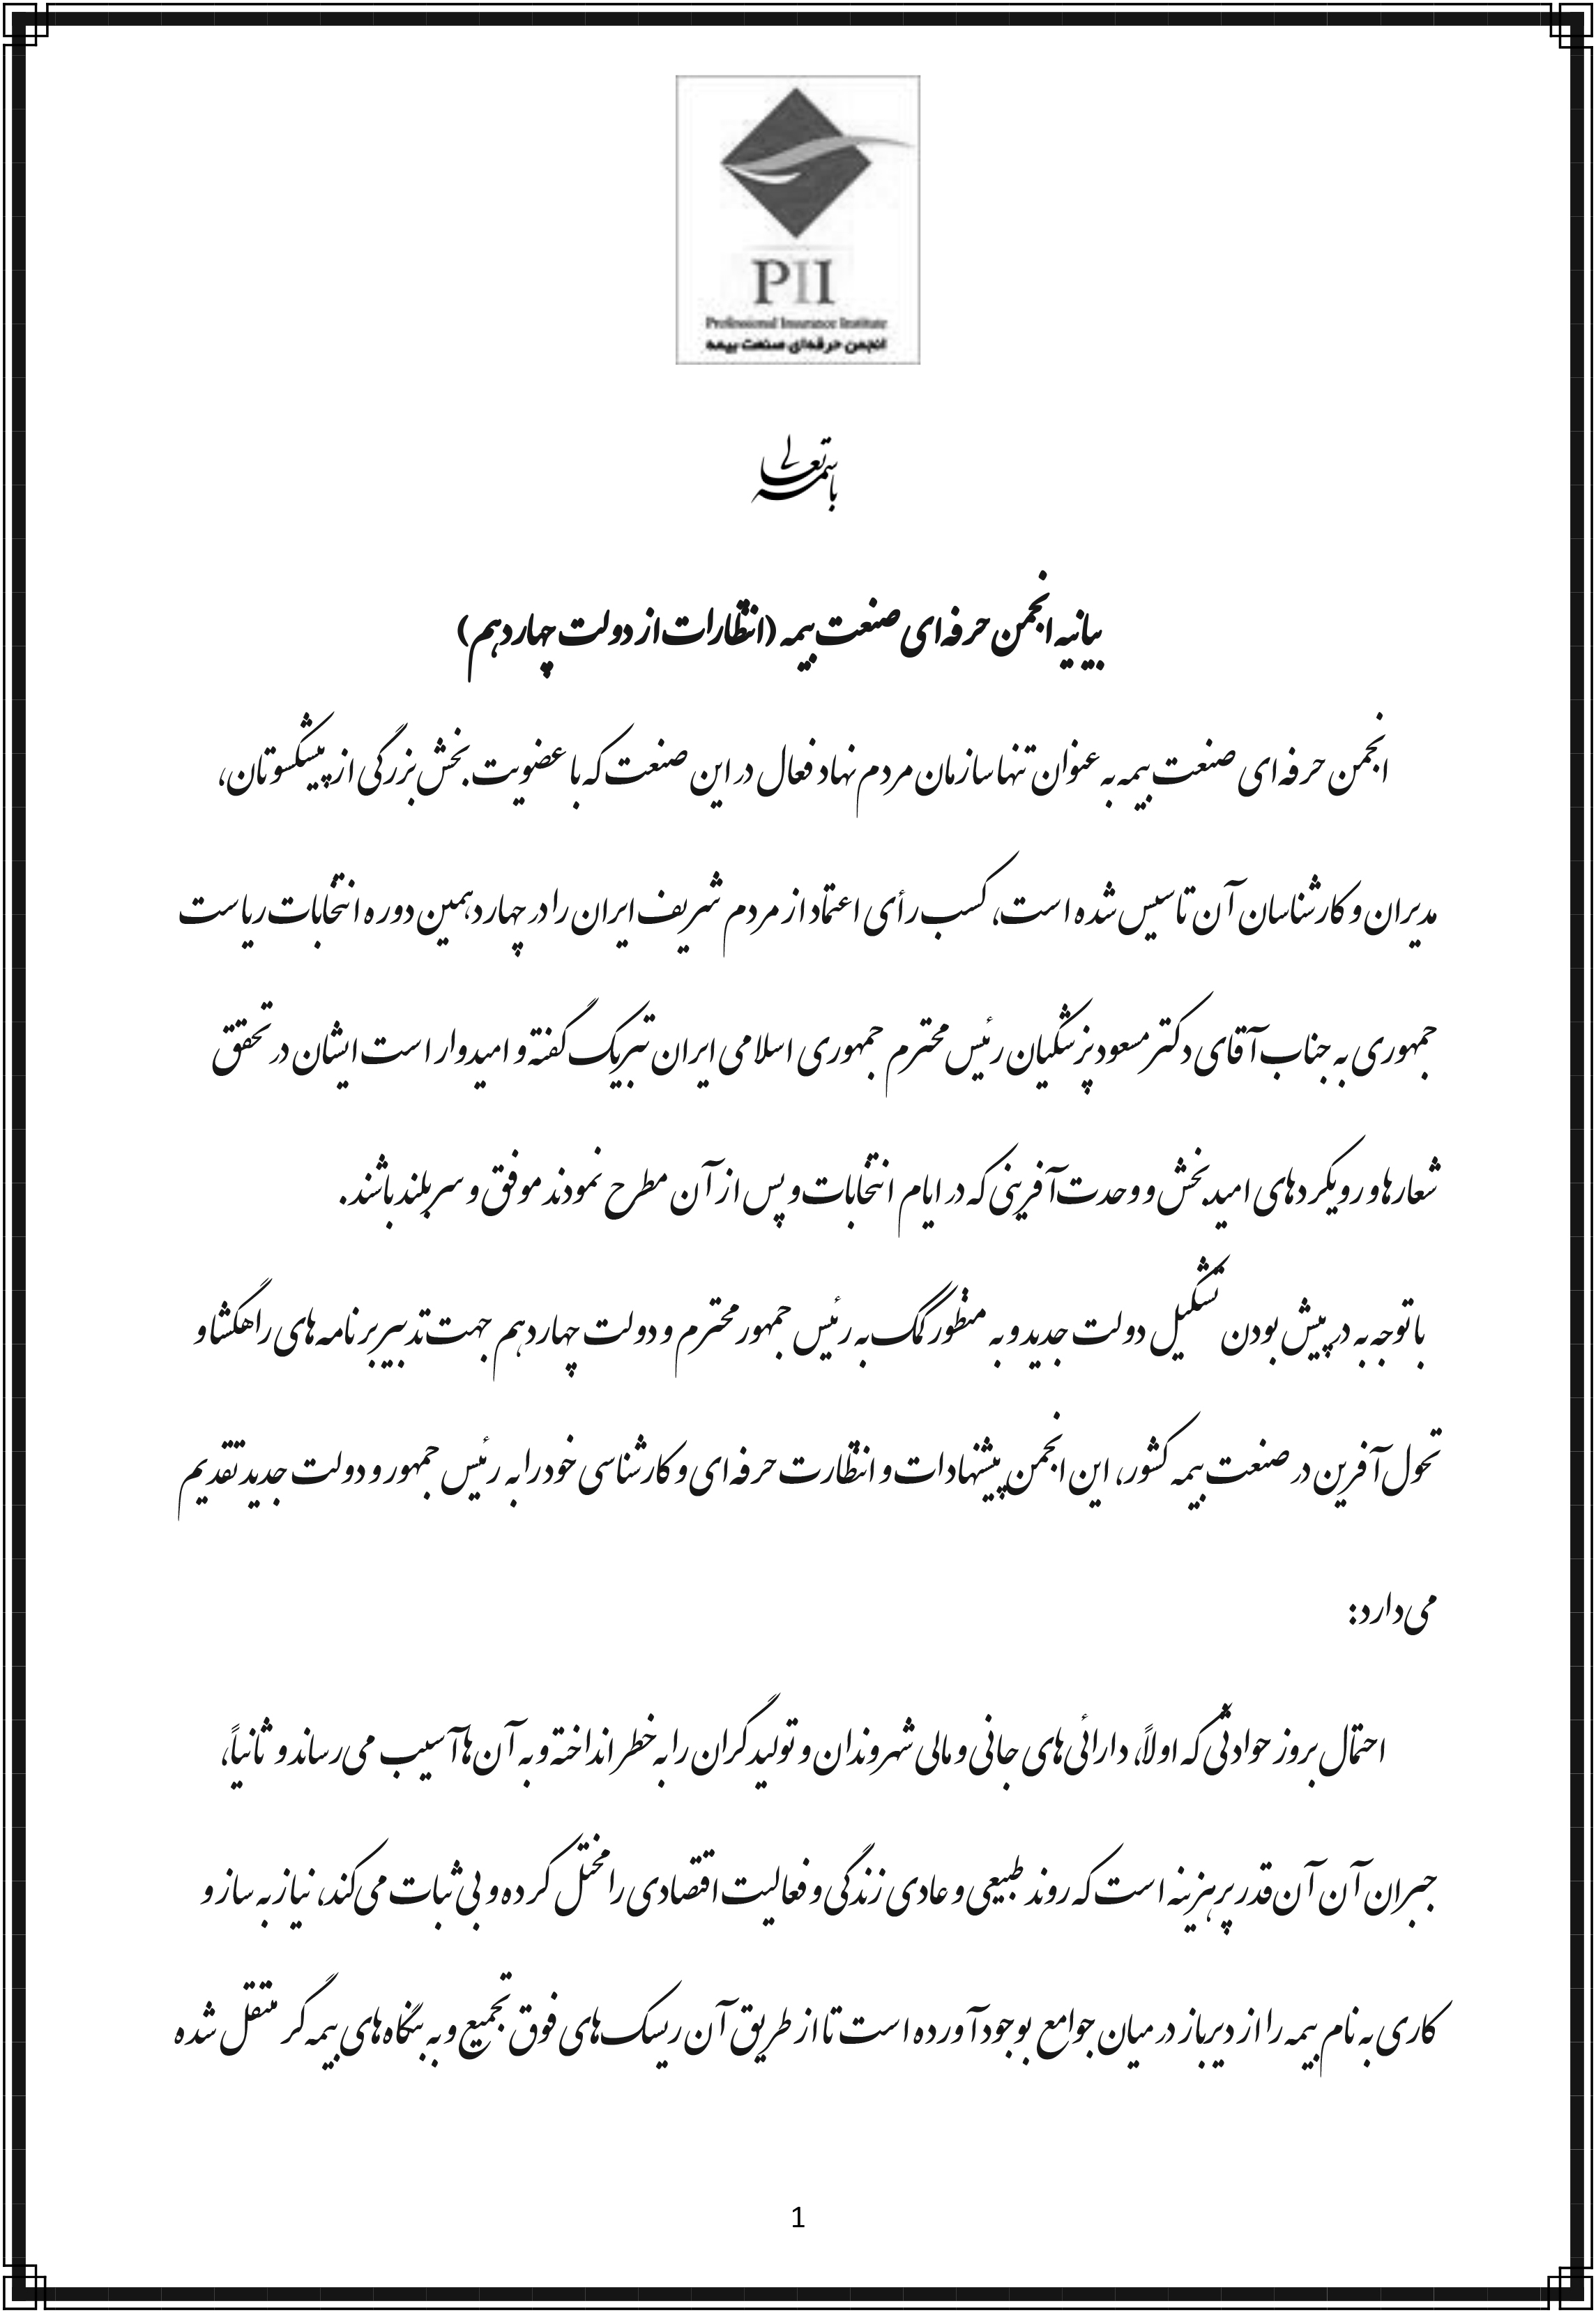 PII
Professional Insurance Institute
انجمن حرفه‌ای صنعت بیمه
باسمه تعالی
بیانیه انجمن حرفه‌ای صنعت بیمه (انتظارات از دولت چهاردهم)
انجمن حرفه‌ای صنعت بیمه به عنوان تنها سازمان مردم نهاد فعال در این صنعت که با عضویت بخش بزرگی از پیشکسوتان،
مدیران و کارشناسان آن تاسیس شده است، کسب رأی اعتماد از مردم شریف ایران را در چهاردهمین دوره انتخابات ریاست
جمهوری به جناب آقای دکتر مسعود پزشکیان رئیس محترم جمهوری اسلامی ایران تبریک گفته و امیدوار است ایشان در تحقق
شعارها و رویکردهای امیدبخش و وحدت‌آفرینی که در ایام انتخابات و پس از آن مطرح نمودند موفق و سربلند باشند.
با توجه به در پیش بودن تشکیل دولت جدید و به منظور کمک به رئیس جمهور محترم و دولت چهاردهم جهت تدبیر برنامه‌های راهگشا و
تحول‌آفرین در صنعت بیمه کشور، این انجمن پیشنهادات و انتظارت حرفه‌ای و کارشناسی خود را به رئیس جمهور و دولت جدید تقدیم
می‌دارد:
احتمال بروز حوادثی که اولاً، دارائی‌های جانی و مالی شهروندان و تولیدگران را به خطر انداخته و به آن‌ها آسیب می‌رساند و ثانیاً،
جبران آن آن‌قدر پرهزینه است که روند طبیعی و عادی زندگی و فعالیت اقتصادی را مختل کرده و بی ثبات می‌کند، نیاز به ساز و
کاری به نام بیمه را از دیرباز در میان جوامع بوجود آورده است تا از طریق آن ریسک‌های فوق تجمیع و به بنگاه‌های بیمه‌گر منتقل شده
1